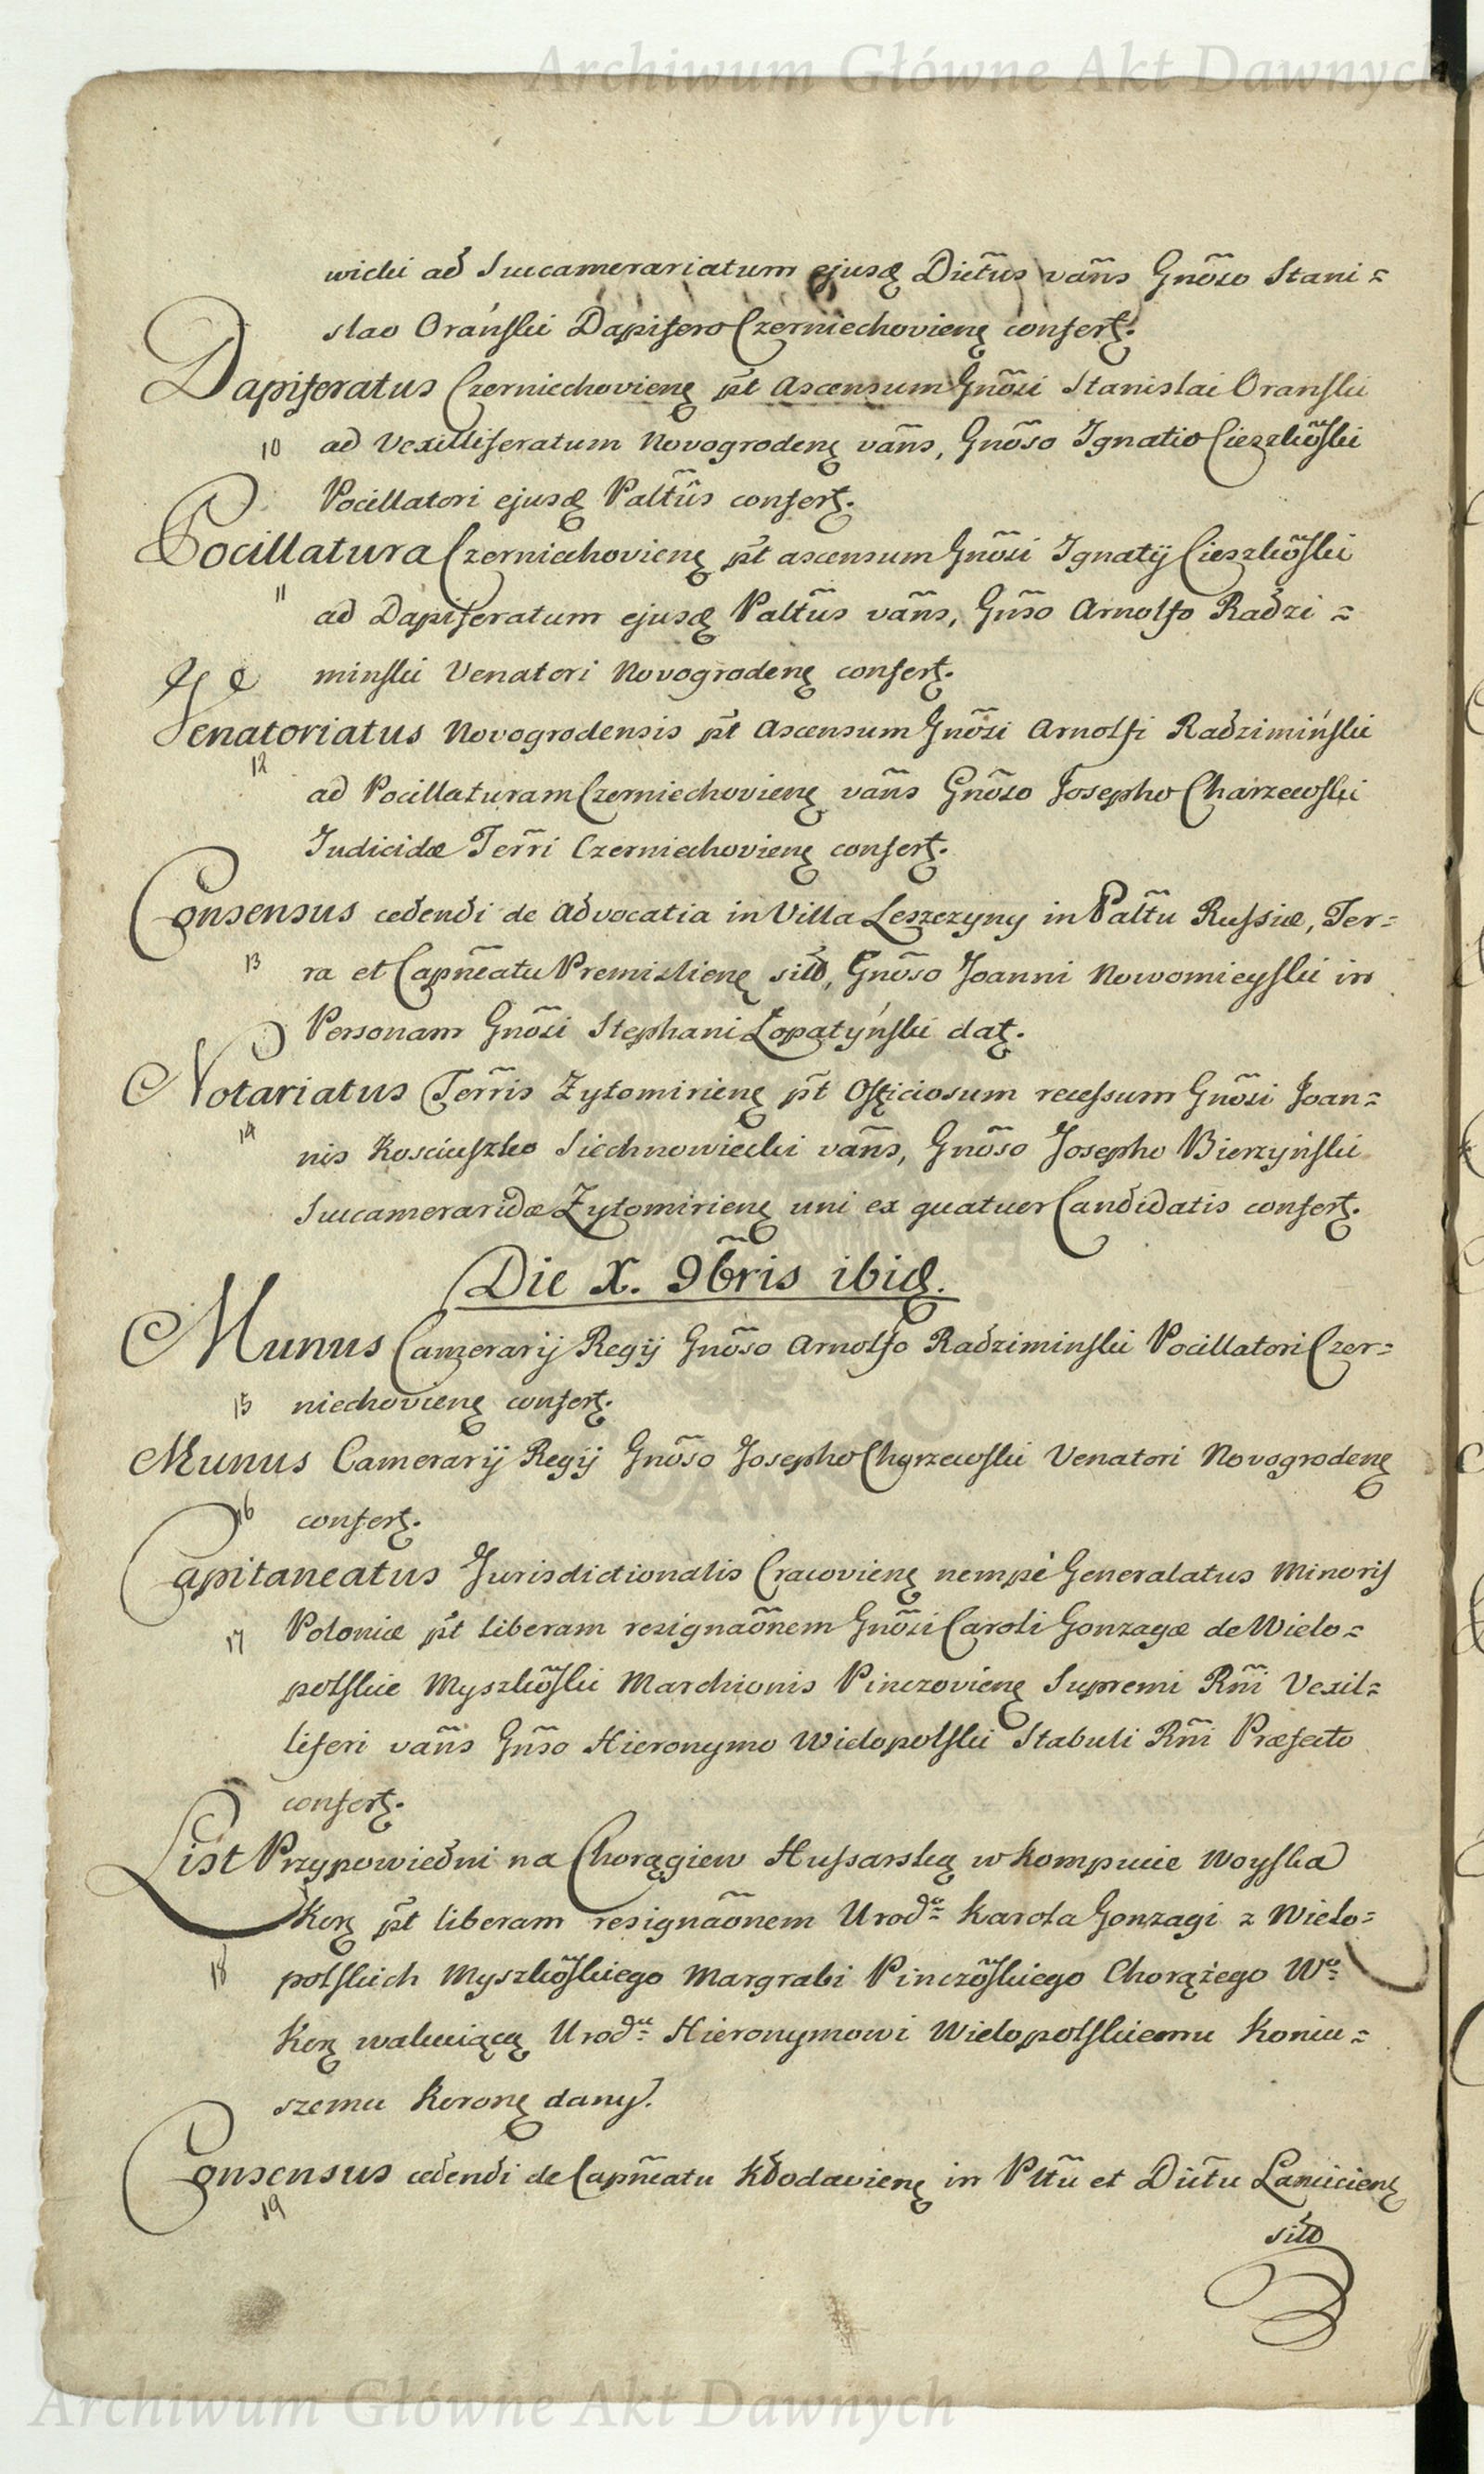 Archiwum Główne Akt Dawnych
wicki ad Succamerariatum ejusđ Dictũs vañs Gnõso Stani=
slao Orański Dapifero Czerniechovienę confert.
Dapiferatus Czerniechovienę pt Ascensum Gnõsi Stanislai Oranski
10 ad Vexilliferatum Novogrodenę vañs, Gnõso Ignatio Cieszkõski
Pocillatori ejusđ Paltũs confert.
Pocillatura Czerniechovienę pt ascensum Gnõsi Ignatij Cieszkõski
11 ad Dapiferatum ejusđ Paltũs vañs, Gñso Arnolfo Radzi=
minski Venatori Novogrodenę confert.
Venatoriatus Novogrodensis pt Ascensum Gnõsi Arnolfi Radzimiński
12 ad Pocillaturam Czerniechovienę vañs Gnõso Josepho Charzewski
Judicidæ Terri Czerniechovienę confert.
Consensus cedendi de Advocatia in Villa Leszczyny in Paltu Russiæ, Ter=
13 ra et Capñeatu Premislienę sitđ, Gnõso Joanni Nowomieyski in
Personam Gnõsi Stephani Łopatyński dat.
Notariatus Terris Zytomirienę pt Officiosum recessum Gnõsi Joan=
14 nis Kosciuszko Siechnowiecki vañs, Gnõso Josepho Bierzyński
Succameraridæ Zytomirienę uni ex quatuor Candidatis confert.
Die X. 9bris ibiđ.
Munus Camerarij Regij Gnõso Arnolfo Radziminski Pocillatori Czer=
15 niechovienę confert.
Munus Camerarij Regij Gnõso Josepho Chyrzewski Venatori Novogrodenę
16 confert.
Capitaneatus Jurisdictionalis Cracovienę nempè Generalatus Minoris
17 Poloniæ pt liberam resignaõnem Gnõsi Caroli Gonzagæ de Wielo=
polskie Myszkõski Marchionis Pinczovienę Supremi Rñi Vexil=
liferi vañs Gñso Hieronymo Wielopolski Stabuli Rñi Præfecto
confert.
List Przypowiedni na Chorągiew Hussarską w kompucie Woyska
Korę pt liberam resignaõnem Urodo Karola Gonzagi z Wielo=
18 polskich Myszkõskiego Margrabi Pinczõskiego Chorążego Wo
Korę wakuiącą Urodu Hieronymowi Wielopolskiemu Koniu=
szemu Koronę dany.
Consensus cedendi de Capñeatu Kłodavienę in Pltũ et Dictu Lancicienę
19
sitđ
Archiwum Główne Akt Dawnych